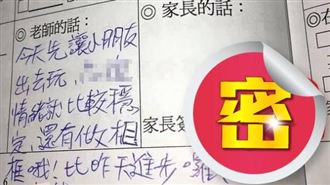 ◎老師的話：
◎家長的話：
◎在
今天先讓小朋友
出去玩，
情緒就比較穩
定，還有做相
框哦！比昨天進步喔
家長簽
密